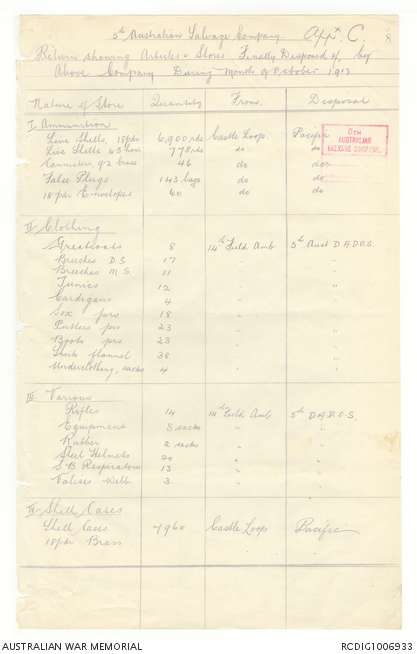 5th Australian Salvage Company App. C. 8
Return showing Articles & Stores Finally Disposed of, by
Above Company During Month of October 1917
Nature of Store Quantity From Disposal
I Ammunition
Live Shells, 18pdr 6,900 rds Castle Loop. Pacific
Live Shells 4.5 how 778 rds do do
Cannister, 92 brass 46 do do
False Plugs 143 bags do do
18 pdr Envelopes 60 do do
5TH AUSTRALIAN SALVAGE COMPANY.
II Clothing
Greatcoats 8 14th Field Amb 5th Aust D.A.D.O.S.
Breeches D.S. 17 " "
Breeches M.S. 11 " "
Tunics 12 " "
Cardigans 4 " "
Sox prs 18 " "
Putties prs 23 " "
Boots prs 23 " "
Shirts flannel 38 " "
Underclothing, sacks 4 " "
III Various
Rifles 14 14th Field Amb 5th D.A.D.O.S.
Equipment 8 sacks " "
Rubber 2 sacks " "
Steel Helmets " "
S.B. Respirators 13 " "
Valises Webb 3 " "
IV Shell Cases
Shell Cases 7960 Castle Loop Pacific
18 pdr Brass
AUSTRALIAN WAR MEMORIAL RCDIG1006933